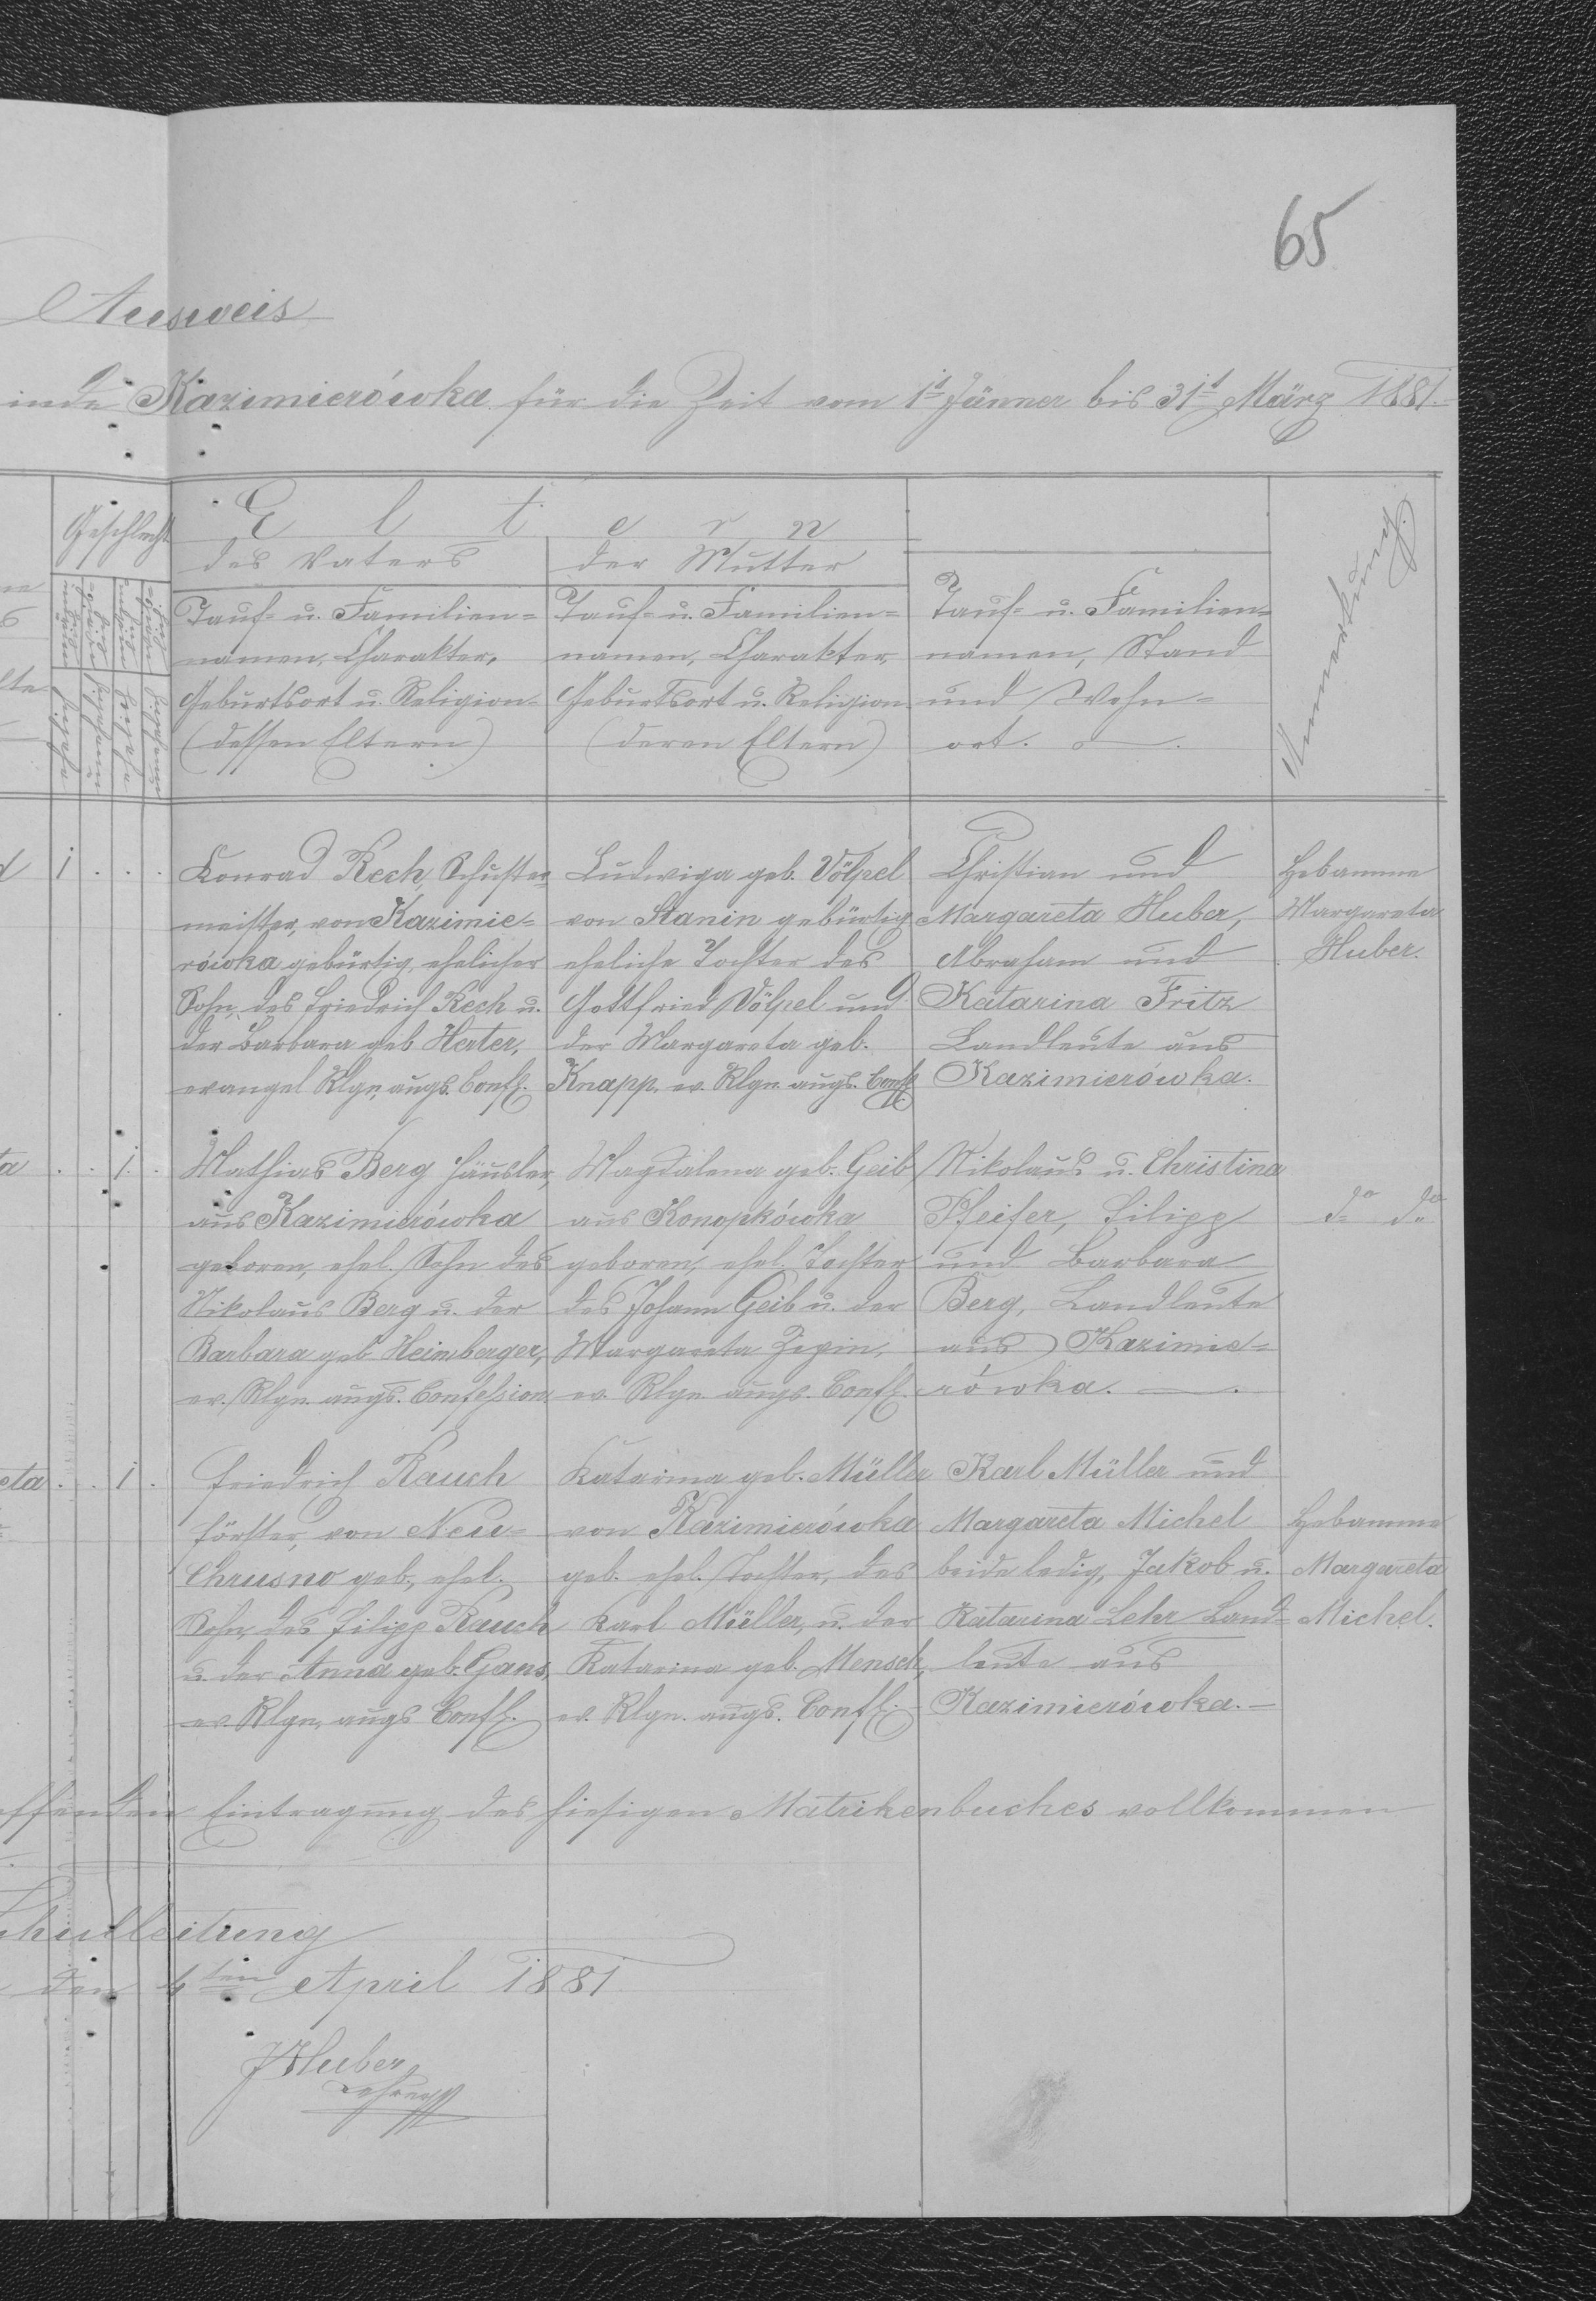 65
Ausweis
inde Kazimierówka für die Zeit vom 1t Jänner bis 31t März 1881.
Geschlecht
Eltern
des Vaters
Tauf- u. Familien-
namen, Charakter,
Geburtsort u. Religion
(dessen Eltern)
der Mutter
Tauf- u. Familien-
namen, Charakter,
Geburtsort u. Religion
(deren Eltern)
Tauf- u. Familien-
namen, Stand
und Wohn-
ort.
Anmerkung
1 . . .
Konrad Rech, Schuster-
meister, von Kazimie-
rówka gebürtig, ehelicher
Sohn, des Friedrich Rech u.
der Barbara geb Herter,
evangel Rlgn, augs. Conf.
Ludwiga geb. Völpel
von Stanin gebürtig
eheliche Tochter des
Gottfried Völpel und
der Margareta geb.
Knapp. ev. Rlgn. augs. Conf.
Christian und
Margareta Huber,
Abraham und
Katarina Fritz
Landleute aus
Kazimierówka.
Hebamme
Margareta
Huber.
ta . . 1 .
Mathias Berg Häusler,
aus Kazimierówka
geboren, ehel. Sohn des
Nikolaus Berg u. der
Barbara geb Heimberger,
ev. Rlgn. augs. Confession
Magdalena geb. Geib
aus Konopkówka
geboren, ehel. Tochter
des Johann Geib u. der
Margareta
ev. Rlgn. augs. Conf.
Nikolaus u. Christina
Pfeifer, Filipp
und Barbara
Berg, Landleute
aus Kazimie-
rówka.
do do
eta . . 1 .
Friedrich Rauch
Förster, von Neu-
Chrusno geb., ehel.
Sohn, des Filipp Rauch
u. der Anna geb. Gans,
ev. Rlgn. augs Conf.
Katarina geb. Müller
von Kazimierówka
geb. ehel. Tochter, des
Karl Müller, u. der
Katarina geb. Mensch,
ev. Rlgn. augs. Conf.
Karl Müller und
Margareta Michel
beide ledig, Jakob u.
Katarina Lehr Land-
leute aus
Kazimierówka.
Hebamme
Margareta
Michel.
effenden Eintragung des hiesigen Matrikenbuches vollkommen
chulleitung
den 4ten April 1881
JHuber
Lehrer